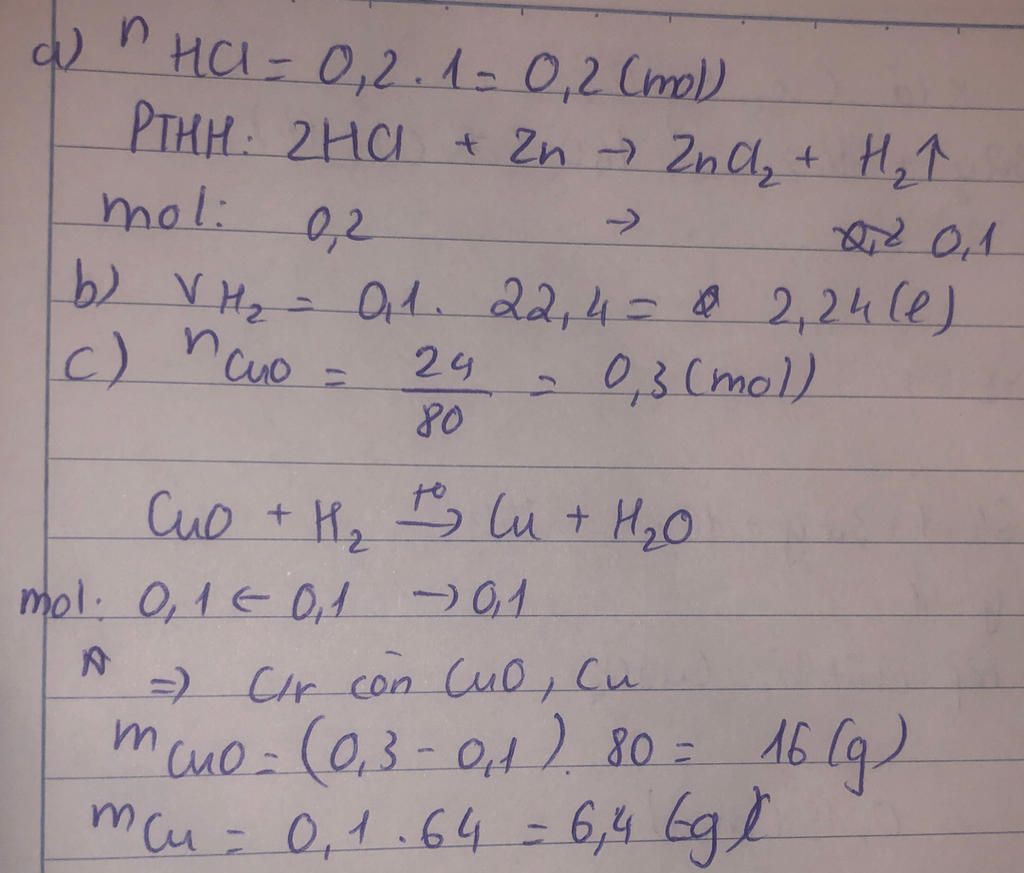 a) nHCl = 0,2 . 1 = 0,2 (mol)
PTHH: 2HCl + Zn → ZnCl₂ + H₂↑
mol: 0,2 → 0,1
b) VH₂ = 0,1 . 22,4 = 2,24 (l)
c) nCuO = 24/80 = 0,3 (mol)
CuO + H₂ →(t°) Cu + H₂O
mol: 0,1 ← 0,1 → 0,1
⇒ C/r còn CuO, Cu
mCuO = (0,3 - 0,1) . 80 = 16 (g)
mCu = 0,1 . 64 = 6,4 (g)